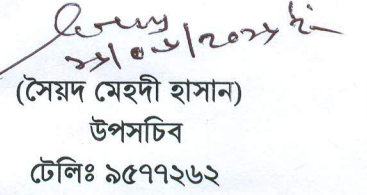 (সৈয়দ মেহদী হাসান)
উপসচিব
টেলিঃ ৯৫৭৭২৬২